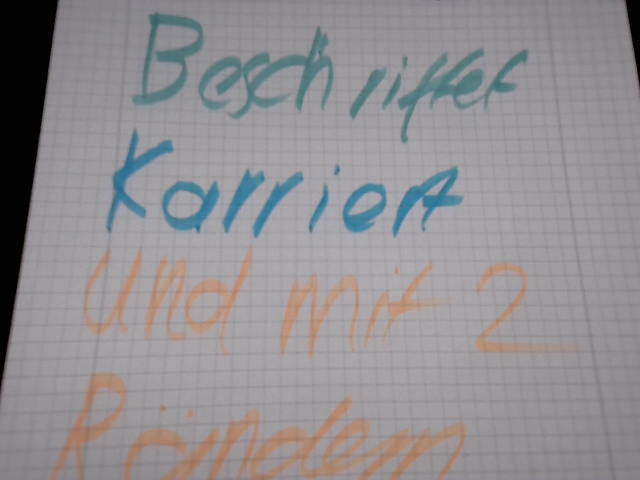 Beschriftet
Karriert
Und mit 2
Rändern